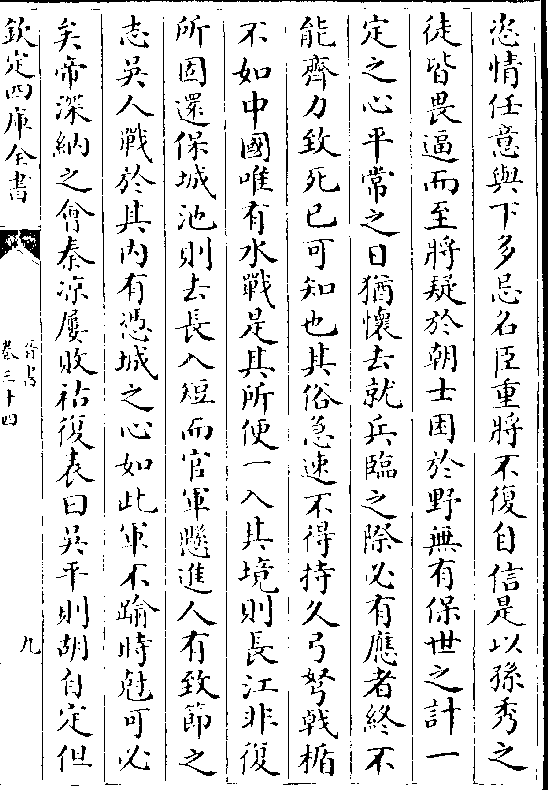 恣情任意與下多忌名臣重將不復自信是以孫秀之
徒皆畏逼而至將疑於朝士困於野無有保世之計一
定之心平常之日猶懷去就兵臨之際必有應者終不
能齊力致死已可知也其俗急速不得持久弓弩戟楯
不如中國唯有水戰是其所便一入其境則長江非復
所固還保城池則去長入短而官軍懸進人有致節之
志吳人戰於其内有憑城之心如此軍不踰時尅可必
矣帝深納之會秦涼屢敗祜復表曰吳平則胡自定但
欽定四庫全書
晉書
卷三十四
九